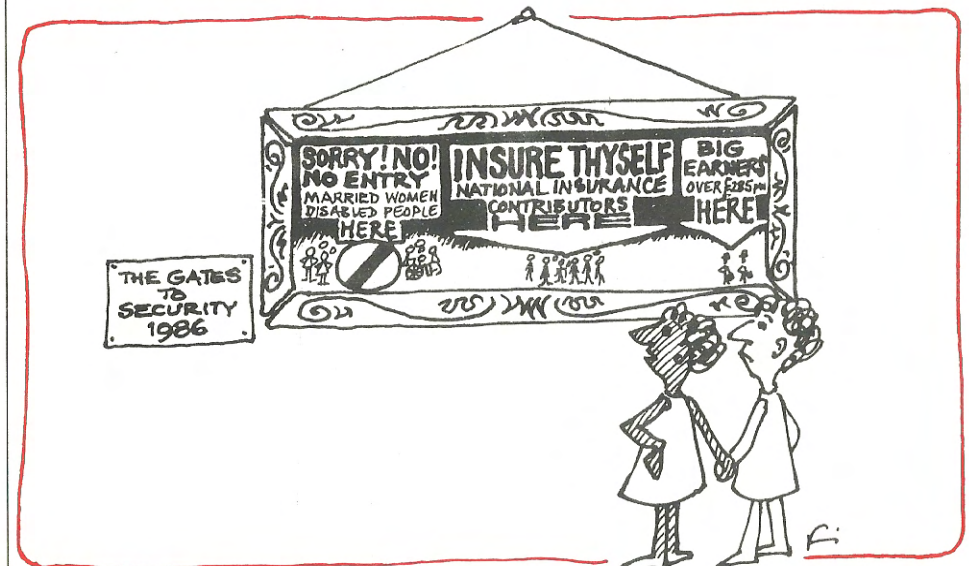 SORRY! NO!
NO ENTRY
MARRIED WOMEN
DISABLED PEOPLE
HERE
INSURE THYSELF
NATIONAL INSURANCE
CONTRIBUTORS
HERE
BIG
EARNERS
OVER £285pm
HERE
THE GATES
TO
SECURITY
1986
Fi